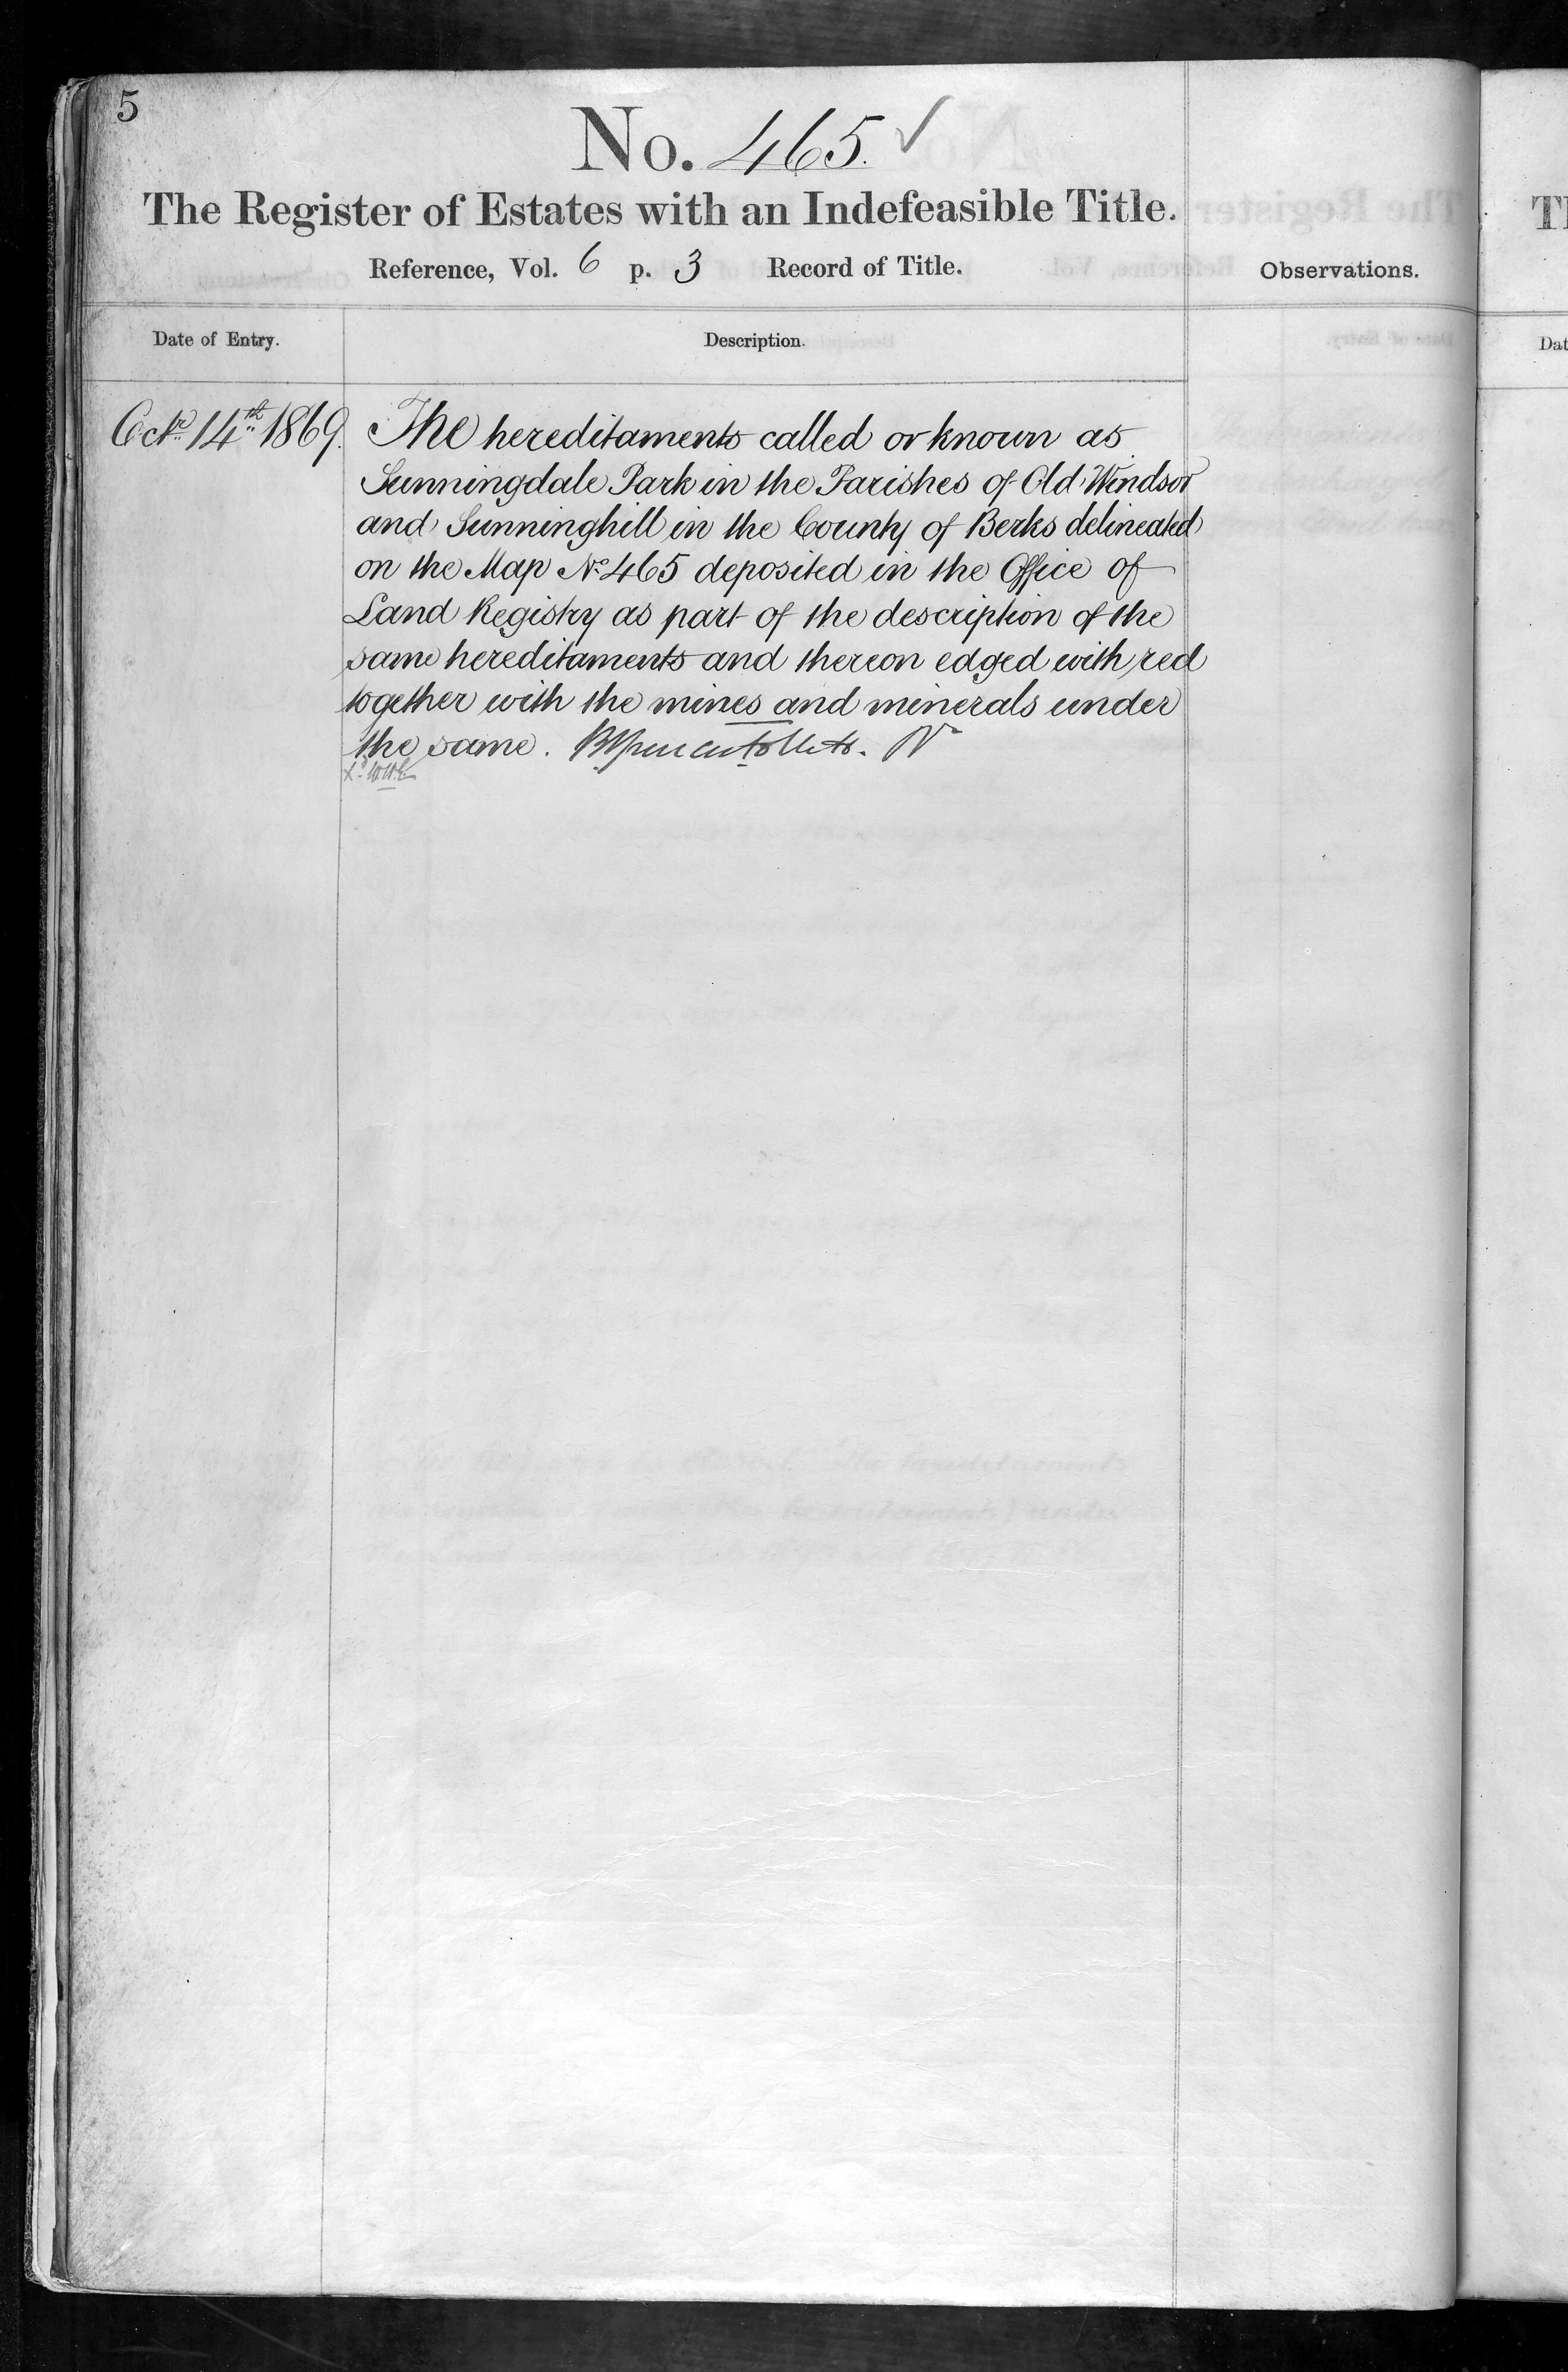 5
No. 465.
The Register of Estates with an Indefeasible Title.
Reference, Vol. 6 p. 3 Record of Title.
Observations.
Date of Entry.
Description.
Octr. 14th 1869. The hereditaments called or known as
Sunningdale Park in the Parishes of Old Windsor
and Sunninghill in the County of Berks delineated
on the Map No. 465 deposited in the Office of
Land Registry as part of the description of the
same hereditaments and thereon edged with red
together with the mines and minerals under
the same.